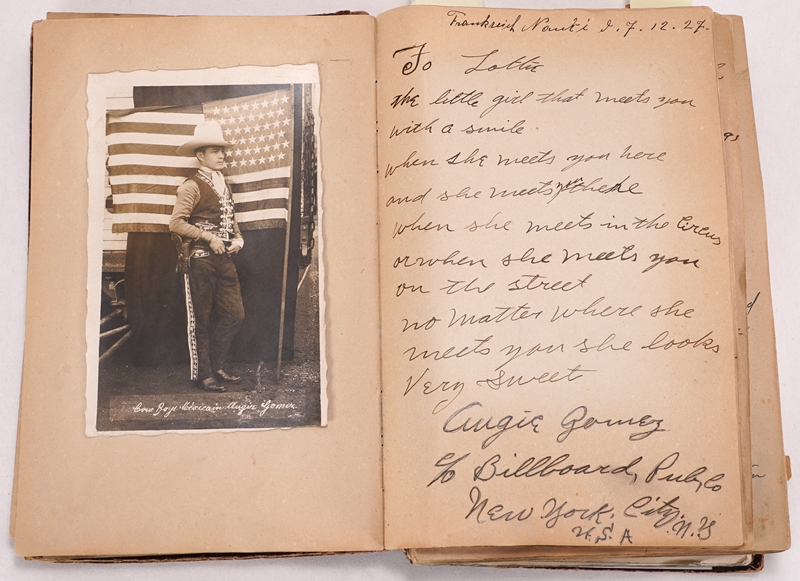 Cow Boys Mexicain Augie Gomez
Frankreich 7.12.27.
To Lotte
the little girl that meets you
with a smile.
when she meets you here
and she meets you there
when she meets in the Circus
or when she meets you
on the street
no matter where she
meets you she looks
Very Sweet
Augie Gomez
c/o Billboard, Pub, Co
New York. City. N.Y
U.S.A